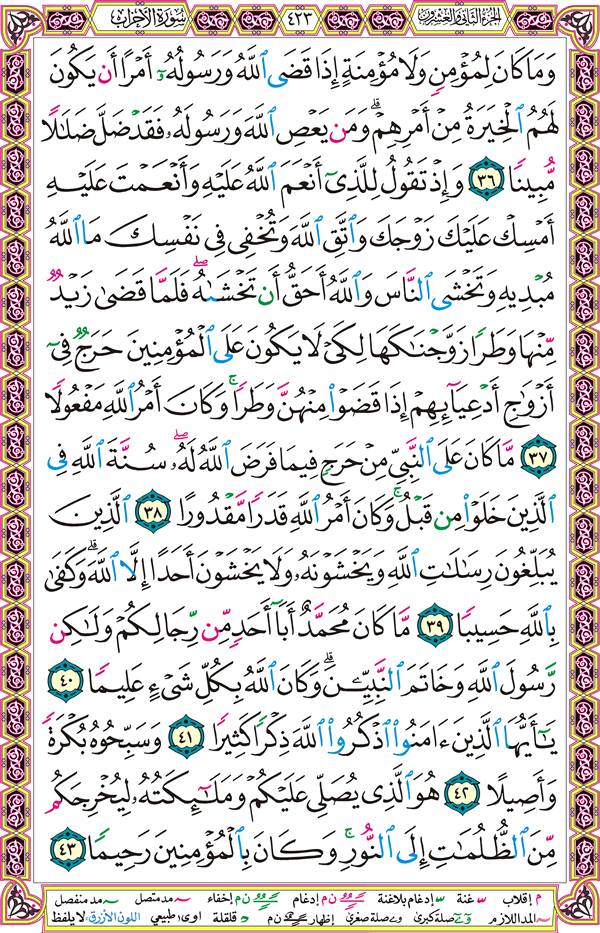 الجزء الثاني والعشرون ٤٢٣ سورة الأحزاب
وَمَا كَانَ لِمُؤْمِنٍ وَلَا مُؤْمِنَةٍ إِذَا قَضَى ٱللَّهُ وَرَسُولُهُۥٓ أَمْرًا أَن يَكُونَ
لَهُمُ ٱلْخِيَرَةُ مِنْ أَمْرِهِمْ ۗ وَمَن يَعْصِ ٱللَّهَ وَرَسُولَهُۥ فَقَدْ ضَلَّ ضَلَٰلًا
مُّبِينًا ٣٦ وَإِذْ تَقُولُ لِلَّذِىٓ أَنْعَمَ ٱللَّهُ عَلَيْهِ وَأَنْعَمْتَ عَلَيْهِ
أَمْسِكْ عَلَيْكَ زَوْجَكَ وَٱتَّقِ ٱللَّهَ وَتُخْفِى فِى نَفْسِكَ مَا ٱللَّهُ
مُبْدِيهِ وَتَخْشَى ٱلنَّاسَ وَٱللَّهُ أَحَقُّ أَن تَخْشَىٰهُ ۖ فَلَمَّا قَضَىٰ زَيْدٌ
مِّنْهَا وَطَرًا زَوَّجْنَٰكَهَا لِكَىْ لَا يَكُونَ عَلَى ٱلْمُؤْمِنِينَ حَرَجٌ فِىٓ
أَزْوَٰجِ أَدْعِيَآئِهِمْ إِذَا قَضَوْا۟ مِنْهُنَّ وَطَرًا ۚ وَكَانَ أَمْرُ ٱللَّهِ مَفْعُولًا
٣٧ مَّا كَانَ عَلَى ٱلنَّبِىِّ مِنْ حَرَجٍ فِيمَا فَرَضَ ٱللَّهُ لَهُۥ ۖ سُنَّةَ ٱللَّهِ فِى
ٱلَّذِينَ خَلَوْا۟ مِن قَبْلُ ۚ وَكَانَ أَمْرُ ٱللَّهِ قَدَرًا مَّقْدُورًا ٣٨ ٱلَّذِينَ
يُبَلِّغُونَ رِسَٰلَٰتِ ٱللَّهِ وَيَخْشَوْنَهُۥ وَلَا يَخْشَوْنَ أَحَدًا إِلَّا ٱللَّهَ ۗ وَكَفَىٰ
بِٱللَّهِ حَسِيبًا ٣٩ مَّا كَانَ مُحَمَّدٌ أَبَآ أَحَدٍ مِّن رِّجَالِكُمْ وَلَٰكِن
رَّسُولَ ٱللَّهِ وَخَاتَمَ ٱلنَّبِيِّـۧنَ ۗ وَكَانَ ٱللَّهُ بِكُلِّ شَىْءٍ عَلِيمًا ٤٠
يَٰٓأَيُّهَا ٱلَّذِينَ ءَامَنُوا۟ ٱذْكُرُوا۟ ٱللَّهَ ذِكْرًا كَثِيرًا ٤١ وَسَبِّحُوهُ بُكْرَةً
وَأَصِيلًا ٤٢ هُوَ ٱلَّذِى يُصَلِّى عَلَيْكُمْ وَمَلَٰٓئِكَتُهُۥ لِيُخْرِجَكُم
مِّنَ ٱلظُّلُمَٰتِ إِلَى ٱلنُّورِ ۚ وَكَانَ بِٱلْمُؤْمِنِينَ رَحِيمًا ٤٣
م إقلاب غنة إدغام بلاغنة ن م إدغام إخفاء مد متصل مد منفصل
المد اللازم صلة كبرى صلة صغرى إظهار ن م قلقلة اوى طبيعي اللون الأزرق: لا يلفظ